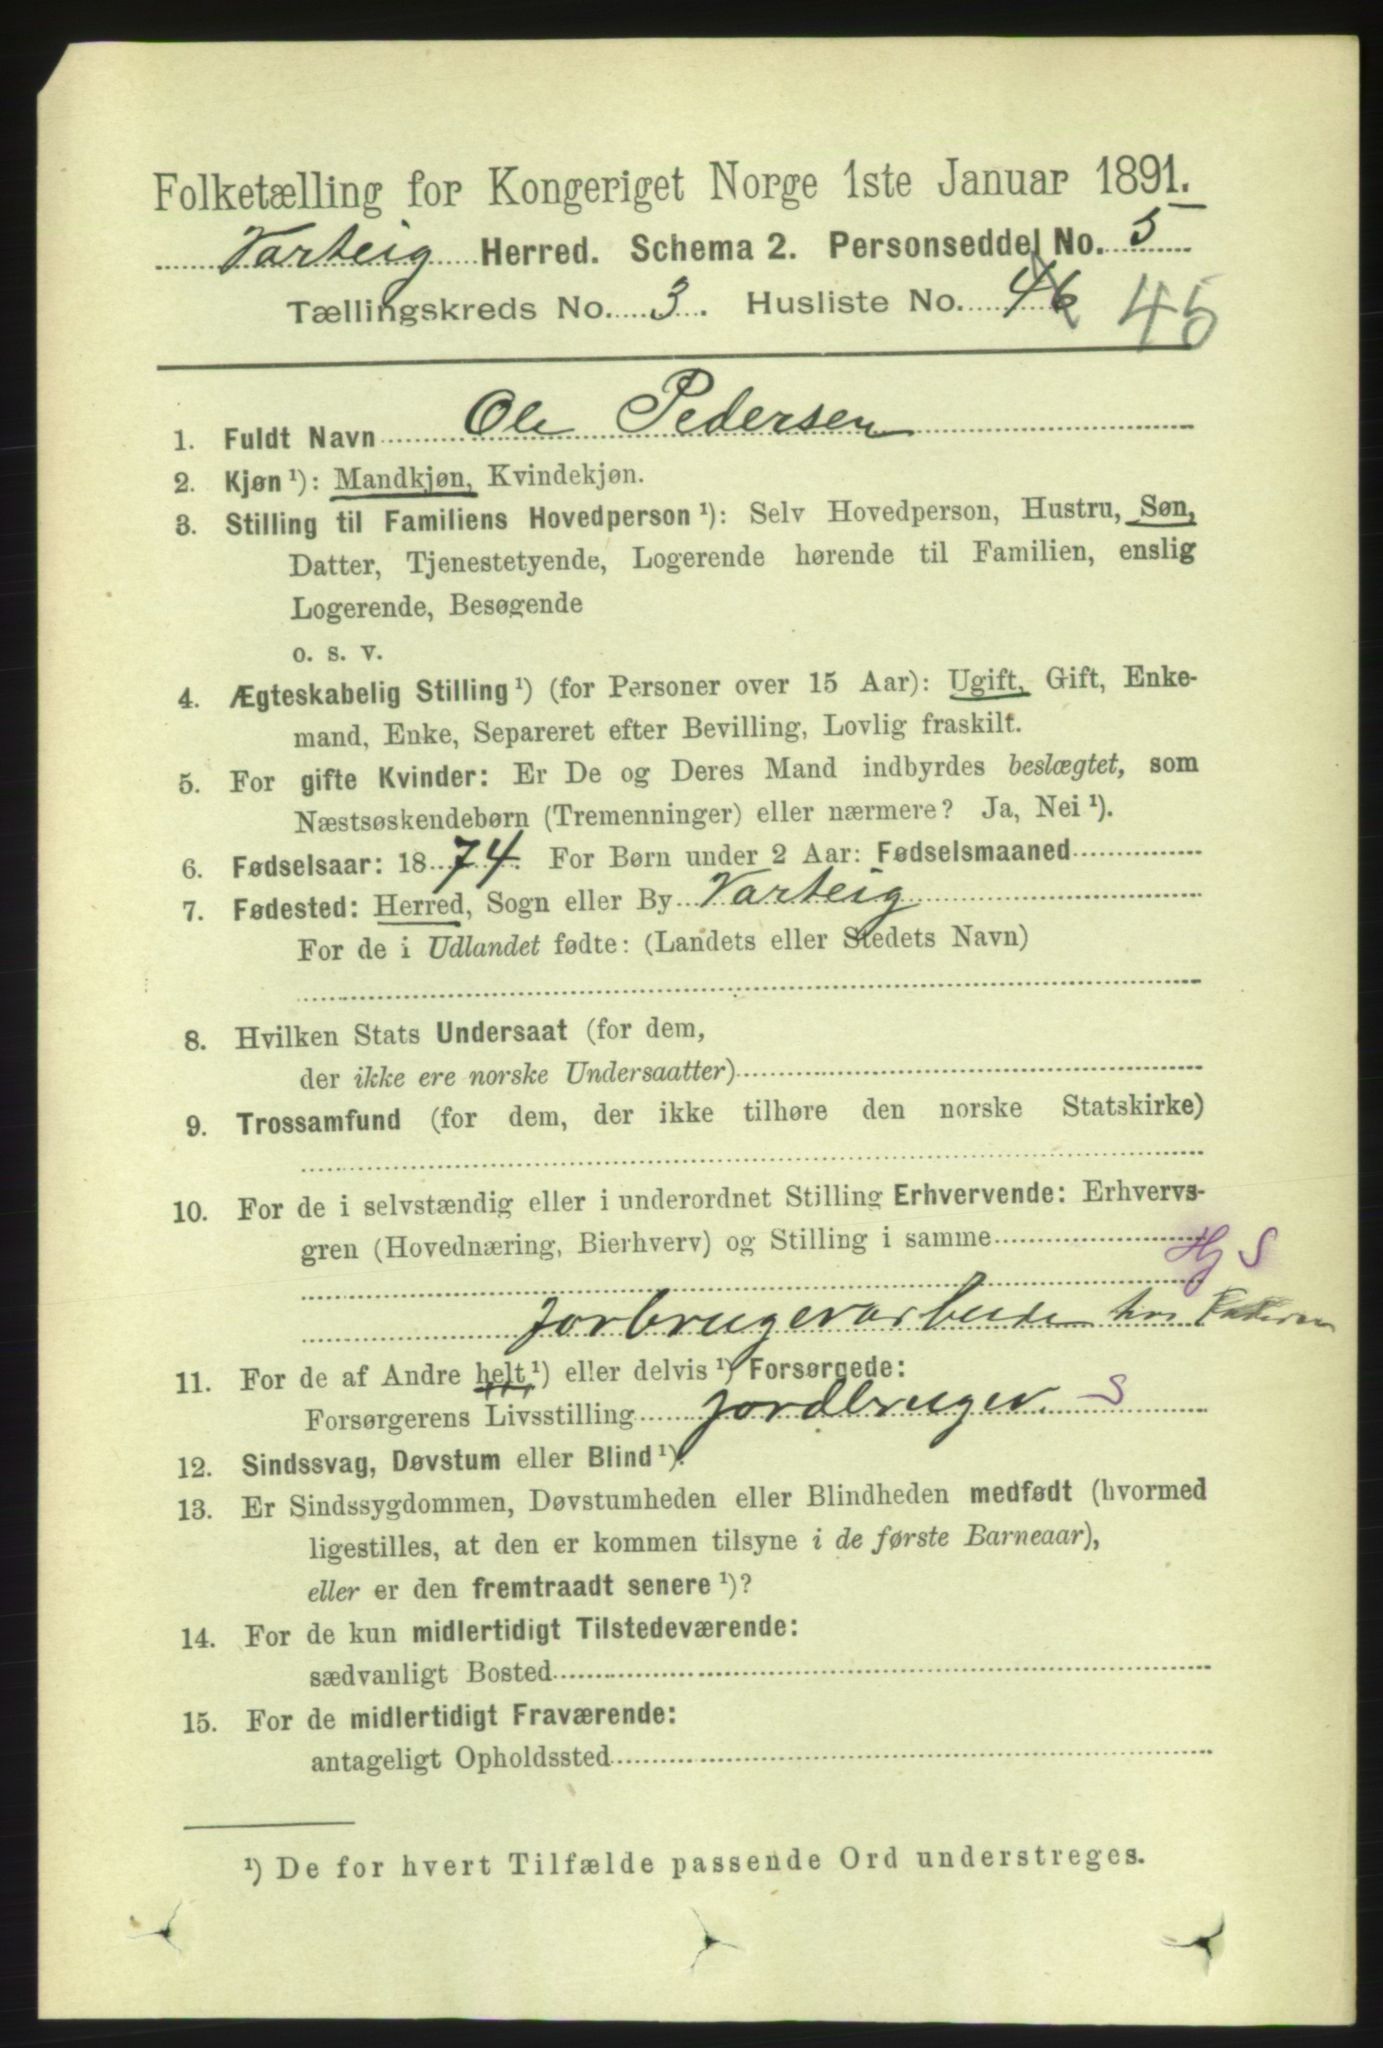 Folketælling for Kongeriget Norge 1ste Januar 1891.
Varteig Herred. Schema 2. Personseddel No. 5
Tællingskreds No. 3. Husliste No. 46 45
1. Fuldt Navn Ole Pedersen
2. Kjøn ¹): Mandkjøn, Kvindekjøn.
3. Stilling til Familiens Hovedperson ¹): Selv Hovedperson, Hustru, Søn,
Datter, Tjenestetyende, Logerende hørende til Familien, enslig
Logerende, Besøgende
o. s. v.
4. Ægteskabelig Stilling ¹) (for Personer over 15 Aar): Ugift, Gift, Enke-
mand, Enke, Separeret efter Bevilling, Lovlig fraskilt.
5. For gifte Kvinder: Er De og Deres Mand indbyrdes beslægtet, som
Næstsøskendebørn (Tremenninger) eller nærmere? Ja, Nei ¹).
6. Fødselsaar: 1874. For Børn under 2 Aar: Fødselsmaaned
7. Fødested: Herred, Sogn eller By Varteig
For de i Udlandet fødte: (Landets eller Stedets Navn)
8. Hvilken Stats Undersaat (for dem,
der ikke ere norske Undersaatter)
9. Trossamfund (for dem, der ikke tilhøre den norske Statskirke)
10. For de i selvstændig eller i underordnet Stilling Erhvervende: Erhvervs-
gren (Hovednæring, Bierhverv) og Stilling i samme
Hj S
jorbrugerarbeide hos Faderen
11. For de af Andre helt ¹) eller delvis ¹) Forsørgede:
Forsørgerens Livsstilling jordbruger. S
12. Sindssvag, Døvstum eller Blind ¹).
13. Er Sindssygdommen, Døvstumheden eller Blindheden medfødt (hvormed
ligestilles, at den er kommen tilsyne i de første Barneaar),
eller er den fremtraadt senere ¹)?
14. For de kun midlertidigt Tilstedeværende:
sædvanligt Bosted
15. For de midlertidigt Fraværende:
antageligt Opholdssted
¹) De for hvert Tilfælde passende Ord understreges.